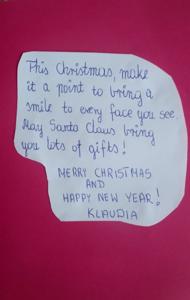 This Christmas, make
it a point to bring a
smile to every face you see.
May Santa Claus bring
you lots of gifts!
MERRY CHRISTMAS
AND
HAPPY NEW YEAR!
KLAUDIA